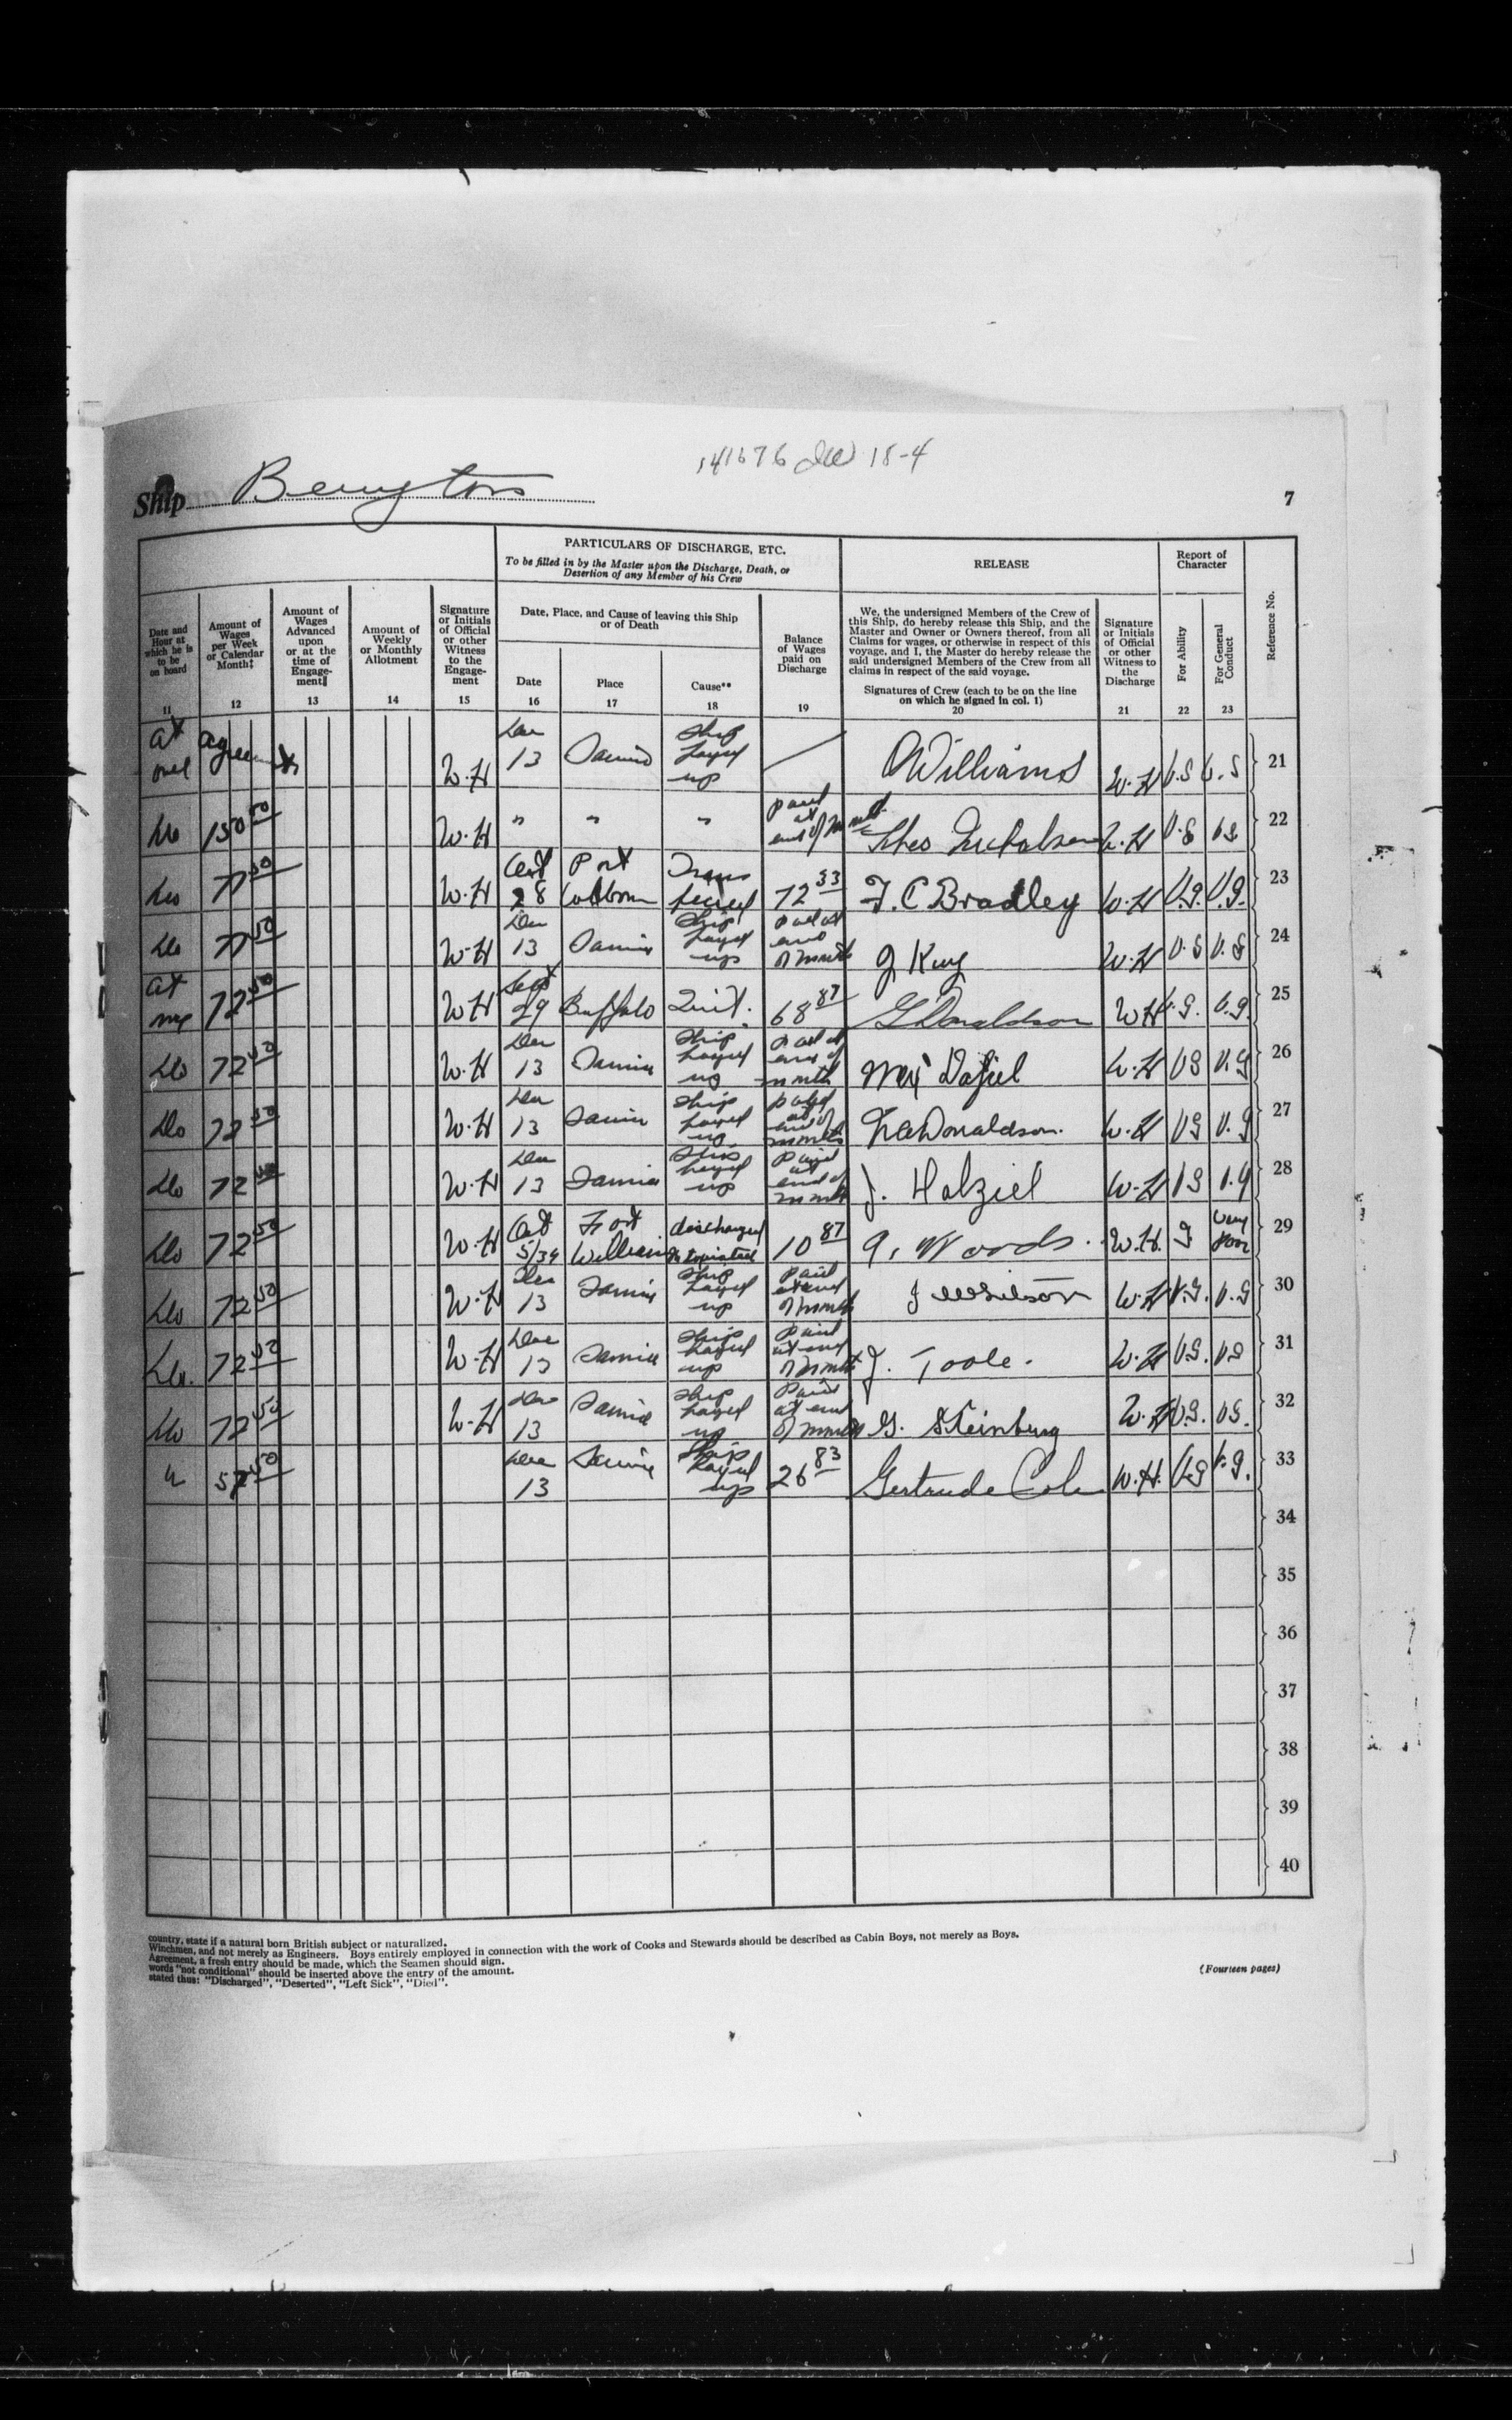 141676 18-4
Ship
7
PARTICULARS OF DISCHARGE, ETC.
To be filled in by the Master upon the Discharge, Death, or
Desertion of any Member of his Crew
RELEASE
Report of
Character
Reference No.
Date and
Hour at
which he is
to be
on board
11
Amount of
Wages
per Week
or Calendar
Month‡
12
Amount of
Wages
Advanced
upon
or at the
time of
Engage-
ment‖
13
Amount of
Weekly
or Monthly
Allotment
14
Signature
or Initials
of Official
or other
Witness
to the
Engage-
ment
15
Date, Place, and Cause of leaving this Ship
or of Death
Date
16
Place
17
Cause**
18
Balance
of Wages
paid on
Discharge
19
We, the undersigned Members of the Crew of
this Ship, do hereby release this Ship, and the
Master and Owner or Owners thereof, from all
Claims for wages, or otherwise in respect of this
voyage, and I, the Master do hereby release the
said undersigned Members of the Crew from all
claims in respect of the said voyage.
Signatures of Crew (each to be on the line
on which he signed in col. 1)
20
Signature
or Initials
of Official
or other
Witness to
the
Discharge
21
For Ability
22
For General
Conduct
23
at once agreements W.H Dec 13 Sarnia Ship Layed up Williams W.H V.G V.G 21
Do 150 00 W.H " " " paid at end of month Theo Nicholson W.H V.G V.G 22
Do 77 50 W.H Oct 28 Port Colborne Transferred 72 33 F. C Bradley W.H V.G. V.G. 23
Do 77 50 W.H Dec 13 Sarnia Ship Layed up Paid at end of month J King W.H V.G V.G 24
at once 72 50 W.H Sept 29 Buffalo Quit. 68 87 G Donaldson W.H V.G. V.G. 25
Do 72 50 W.H Dec 13 Sarnia Ship Layed up Paid at end of month W.H V.G V.G 26
Do 72 50 W.H Dec 13 Sarnia Ship Layed up paid at end of month Donaldson. W.H V.G V.G 27
Do 72 50 W.H Dec 13 Sarnia Ship Layed up Paid at end of month J. Halziel W.H V.G V.G 28
Do 72 50 W.H Oct 5/39 Fort William discharged 10 87 A. Woods. W.H. G Very Poor 29
Do 72 50 W.H Dec 13 Sarnia Ship Layed up Paid at end of month J Wilson W.H V.G. V.G 30
Do. 72 50 W.H Dec 13 Sarnia Ship Layed up Paid at end of month J. Toole. W.H V.G. V.G 31
Do 72 50 W.H Dec 13 Sarnia Ship Layed up Paid at end of month G. Steinburg W.H V.G. V.G. 32
" 52 50 Dec 13 Sarnia Ship Layed up 26 83 Gertrude Cole W.H. V.G V.G. 33
34
35
36
37
38
39
40
country, state if a natural born British subject or naturalized.
Winchmen, and not merely as Engineers. Boys entirely employed in connection with the work of Cooks and Stewards should be described as Cabin Boys, not merely as Boys.
Agreement, a fresh entry should be made, which the Seamen should sign.
words "not conditional" should be inserted above the entry of the amount.
stated thus: "Discharged", "Deserted", "Left Sick", "Died".
(Fourteen pages)